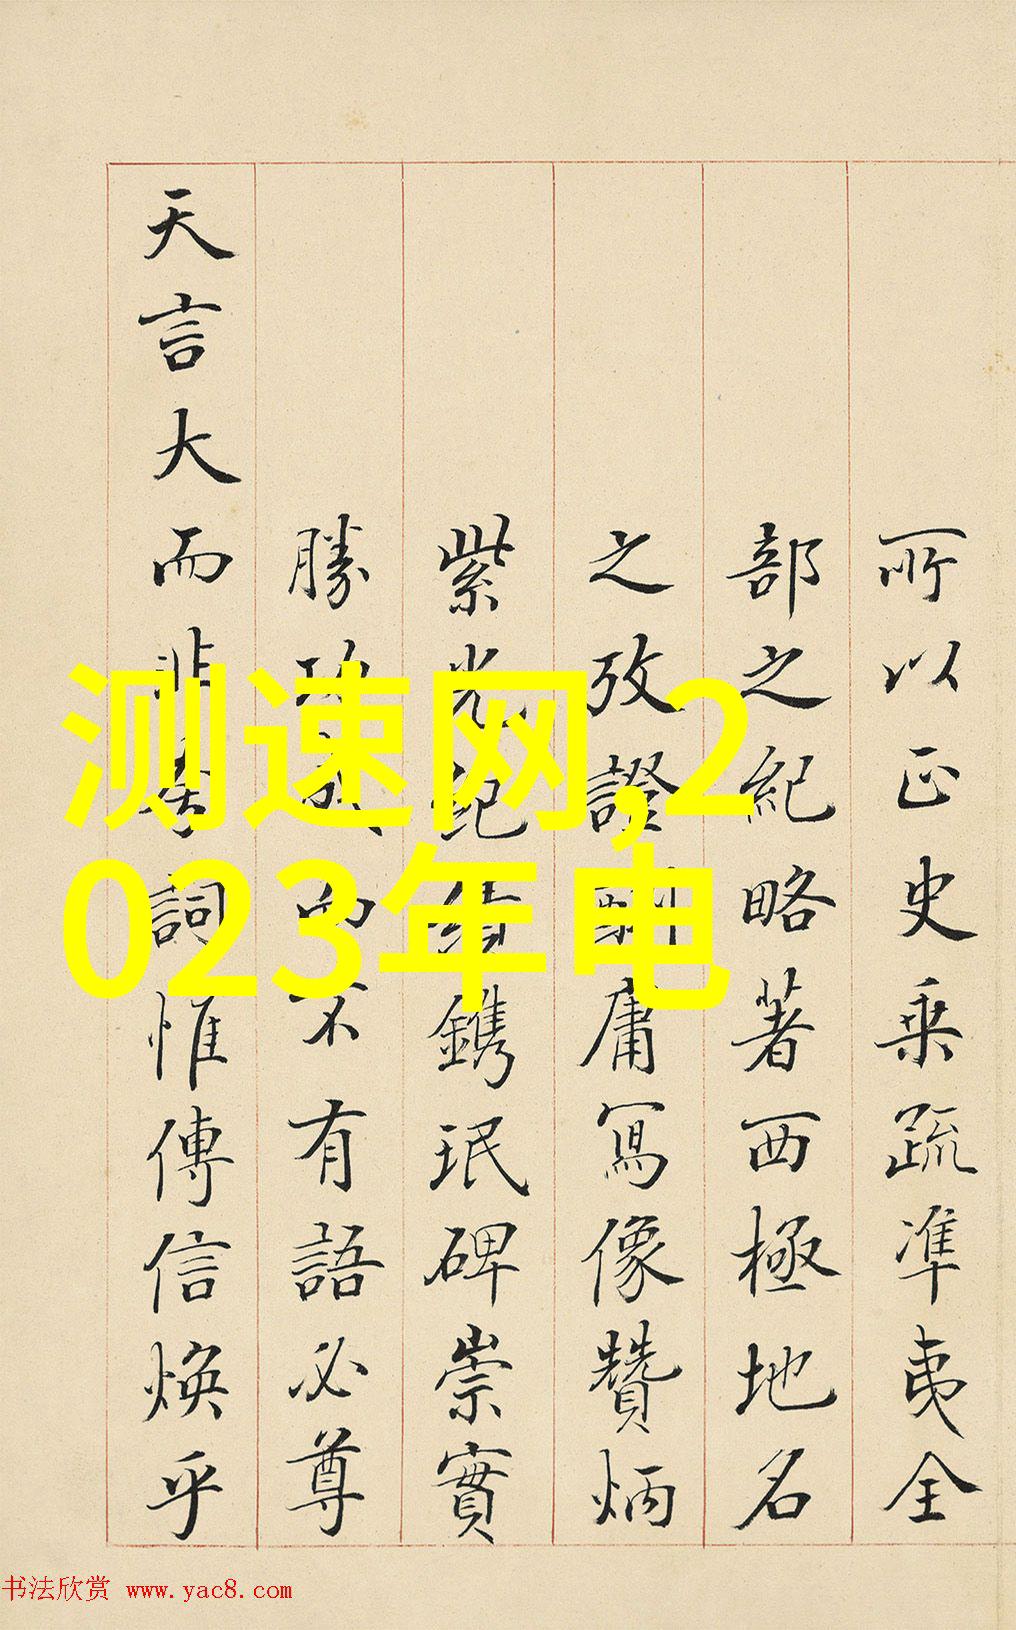 所以正史乘疏準夷全
部之紀略著西極地名
之攷證 庸寫像贊炳
紫光紀 鐫珉碑崇實
勝功 而不有語必尊
天言大而非 詞惟傳信煥乎
测速网,2
023年电
书法欣赏 www.yac8.com